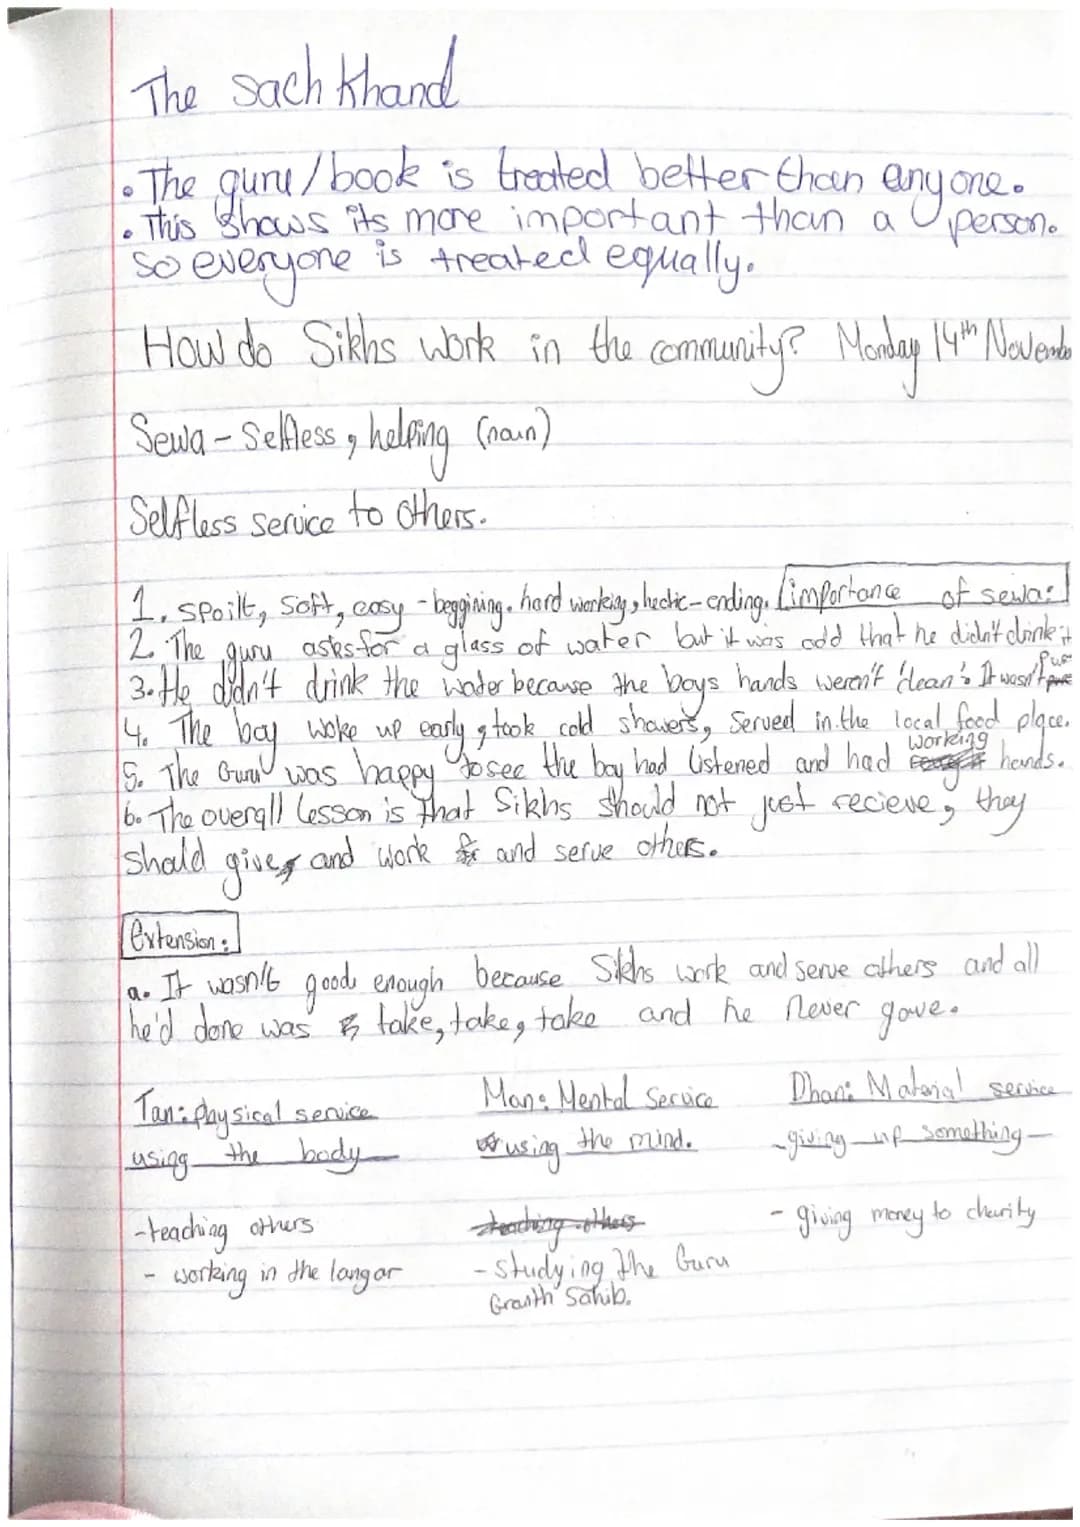 The sach Khand
• The guru/book is treated better than anyone.
• This shows its more important than a person.
so everyone is treated equally.
How do Sikhs work in the community? Monday 14th Novembe
Sewa - Selfless, helping (noun)
Selfless service to others.
1. spoilt, soft, easy - beggining. hard working, hectic - ending. importance of sewa:
2. The guru asks for a glass of water but it was odd that he didn't drink it
3. He didn't drink the water because the boys hands weren't 'clean'. It wasn't pure
4. The boy woke up early, took cold showers, served in the local food place.
5. The Guru was happy to see the boy had listened and had working hands.
6. The overall lesson is that Sikhs should not just recieve, they
should give, and work and serve others.
extension:
a. It wasn't good enough because Sikhs work and serve others and all
he'd done was take, take, take and he never gave.
Tan: physical service Man: Mental Service Dhan: Material service
using the body using the mind. - giving up something -
- teaching others teaching others - giving money to charity
- working in the langar - studying the Guru
Granth Sahib.